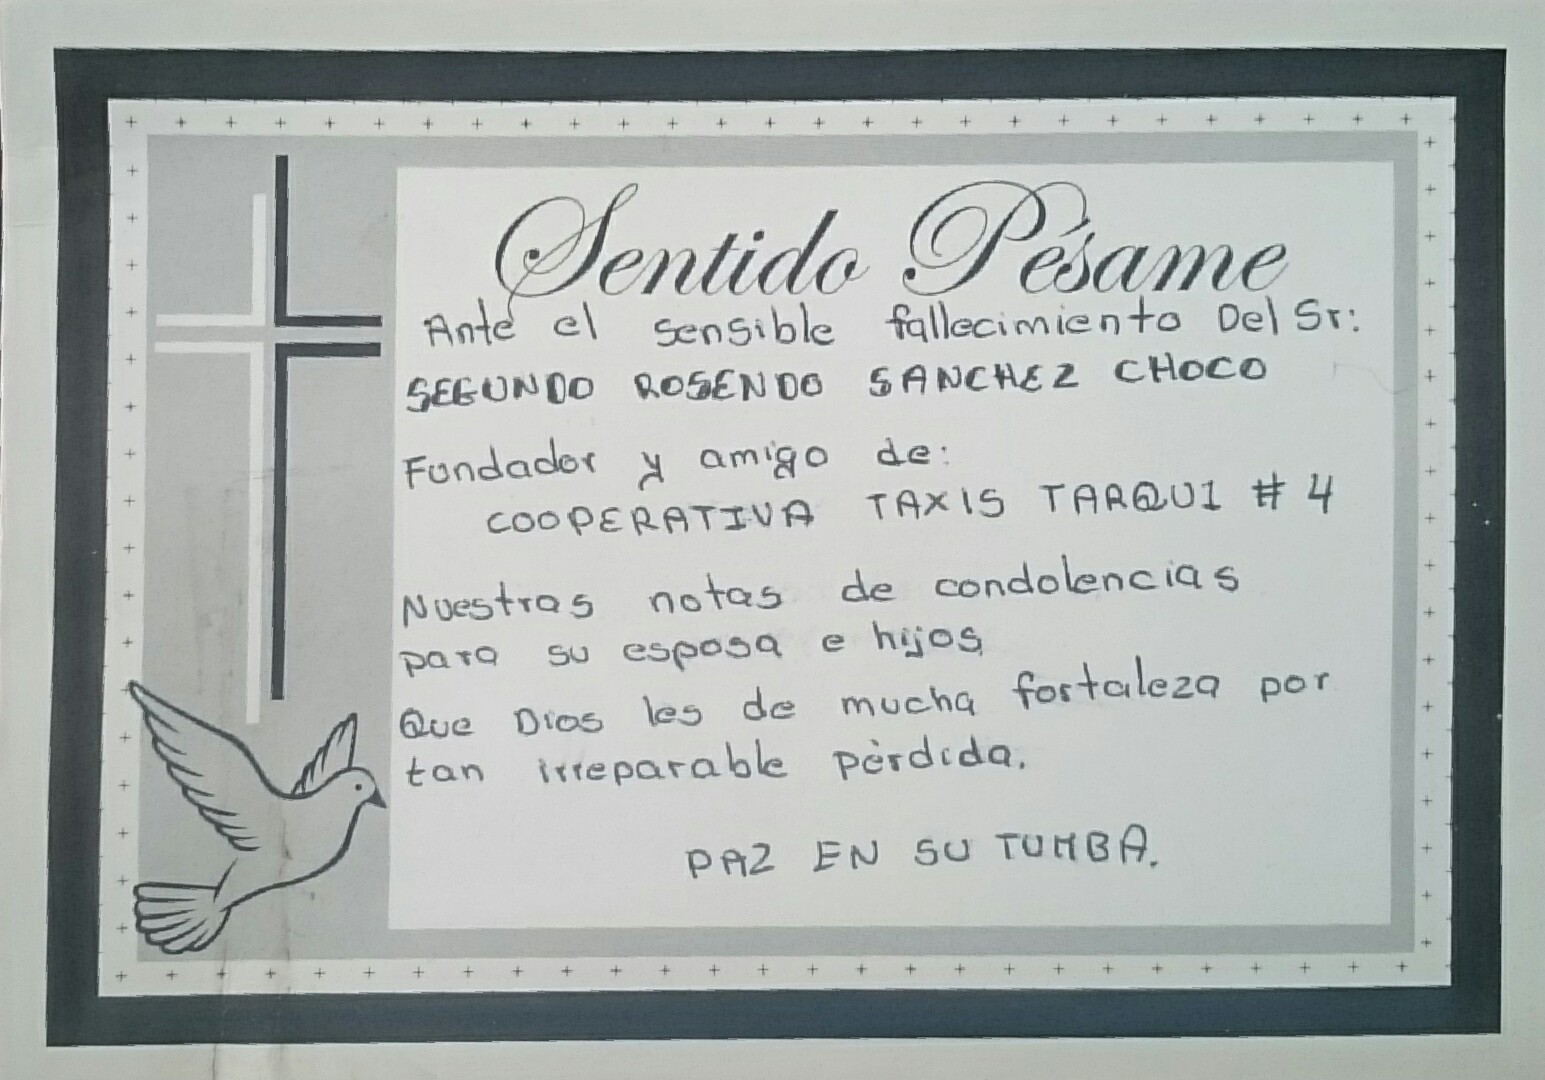 Sentido Pésame
Ante el sensible fallecimiento Del Sr:
SEGUNDO ROSENDO SANCHEZ CHOCO
Fundador y amigo de:
COOPERATIVA TAXIS TARQUI # 4
Nuestras notas de condolencias
para su esposa e hijos,
Que Dios les de mucha fortaleza por
tan irreparable pèrdida.
PAZ EN SU TUMBA.